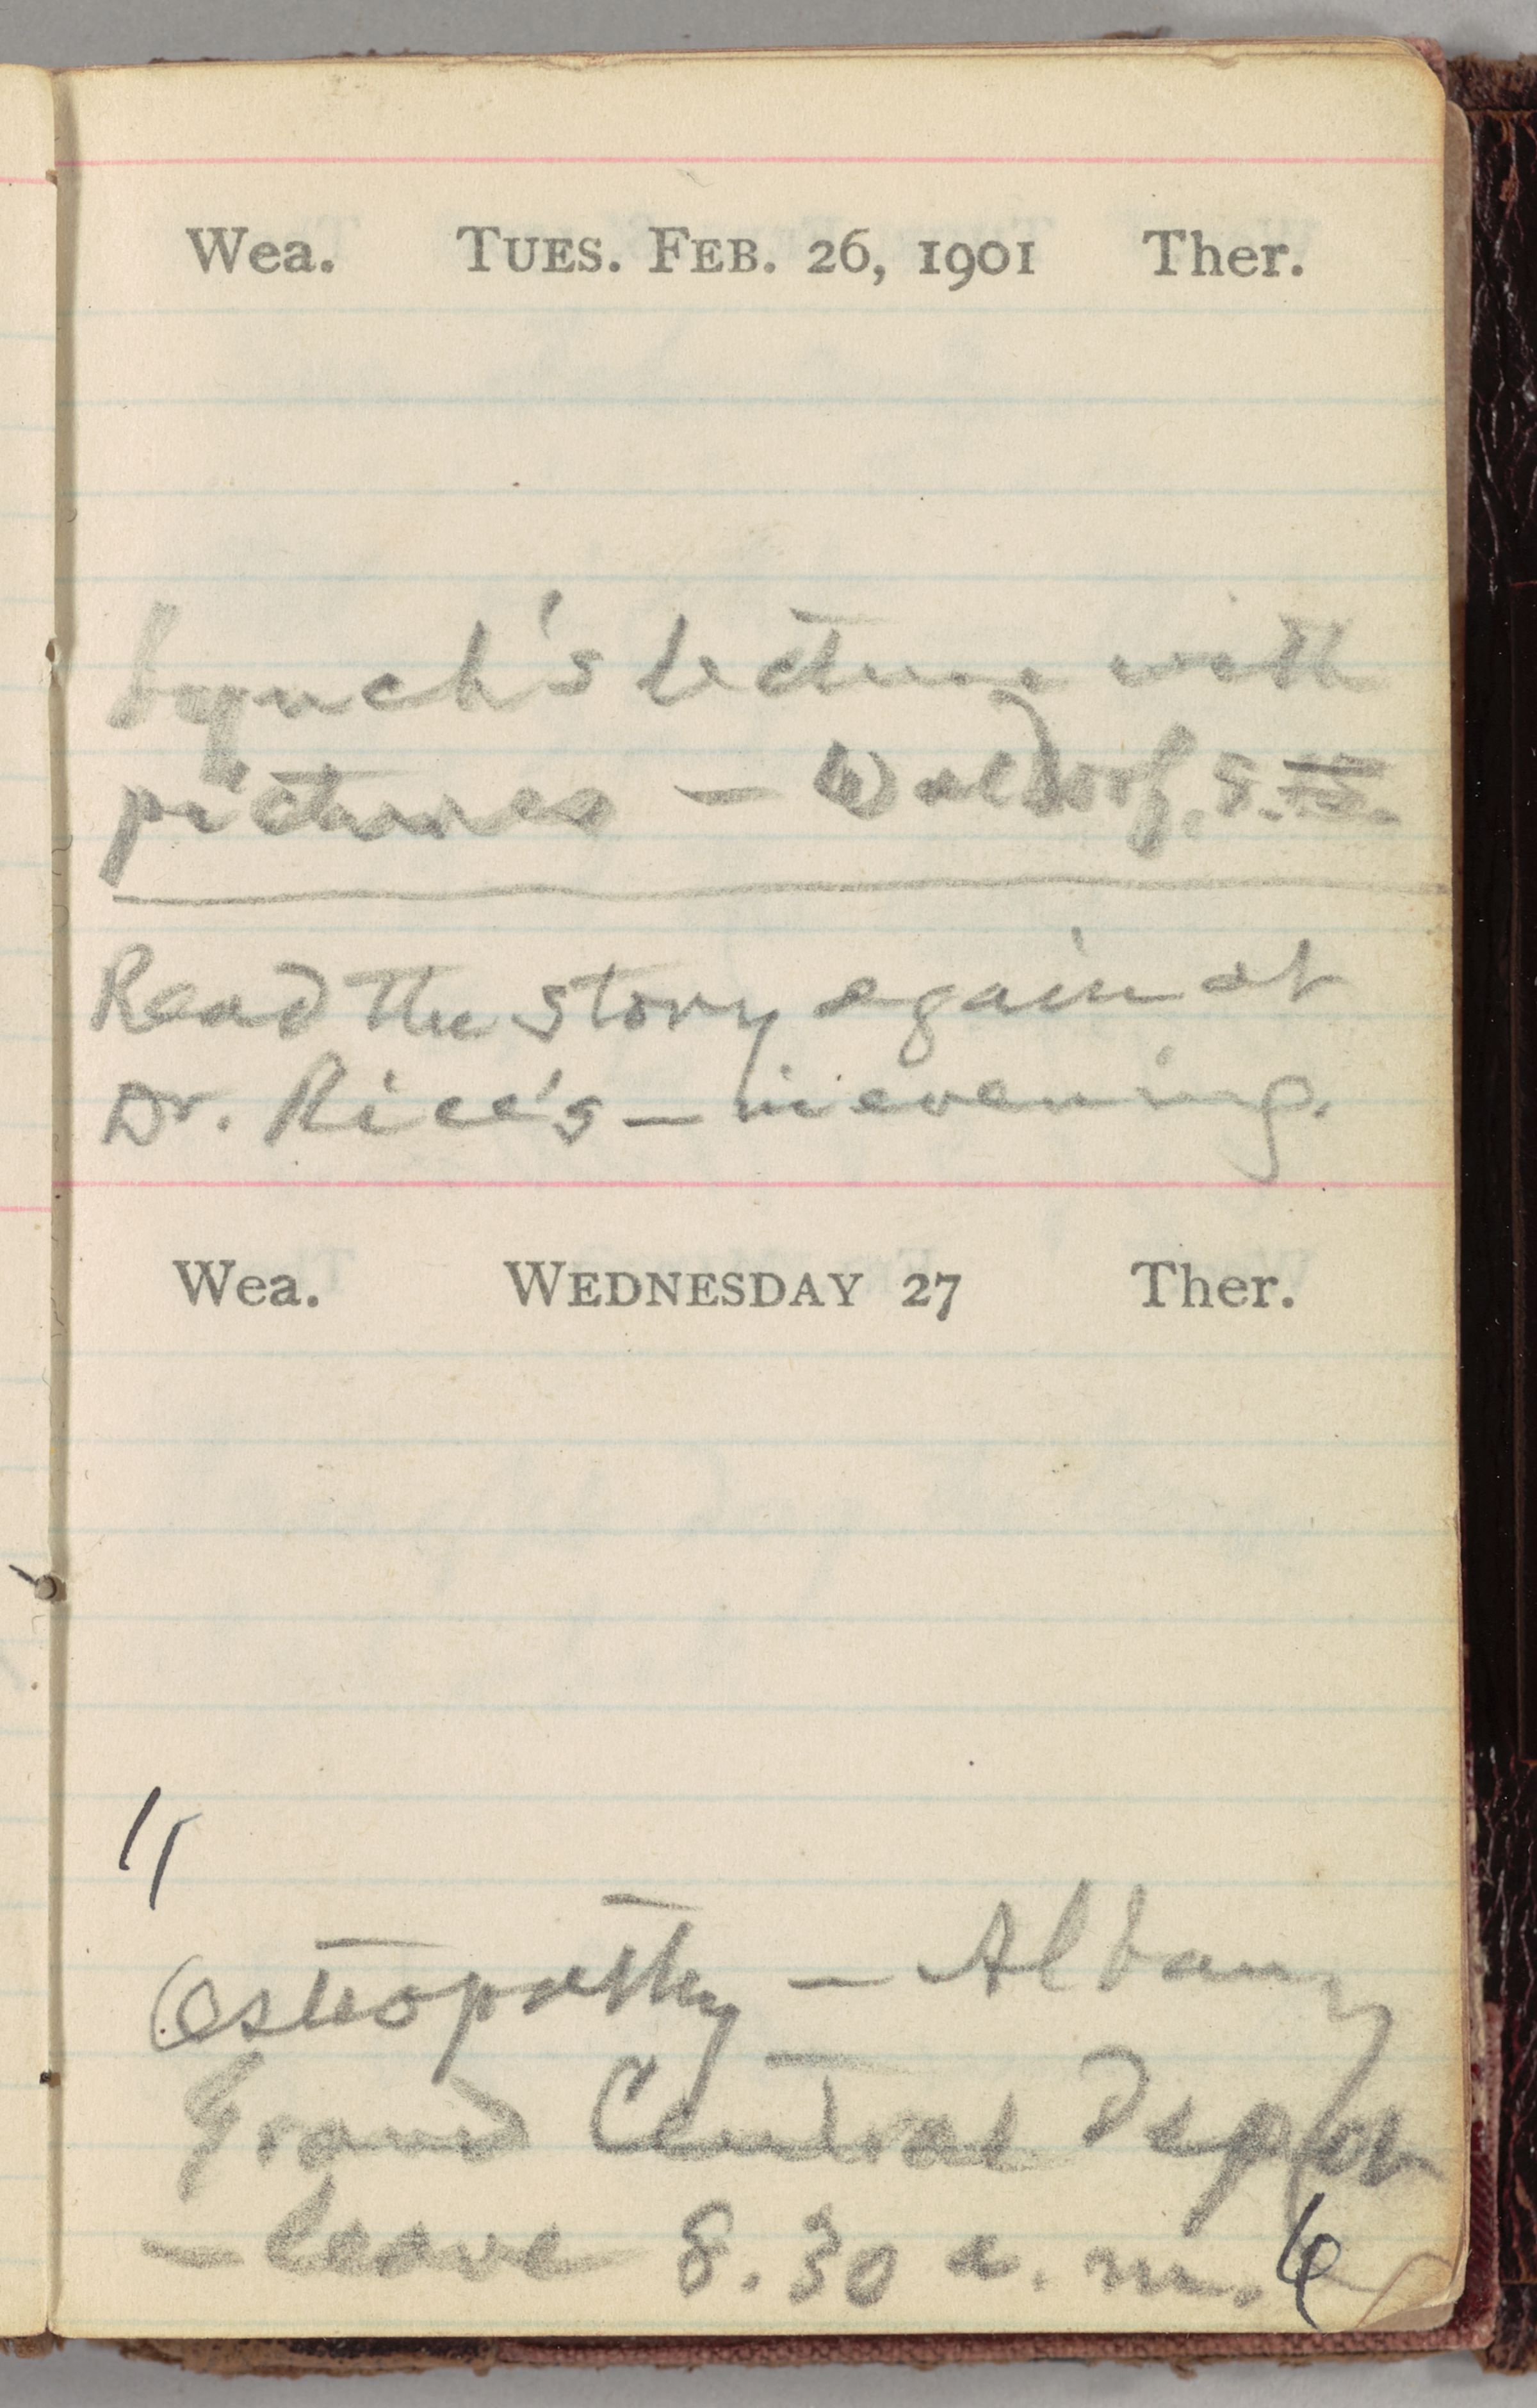 Wea. TUES. FEB. 26, 1901 Ther.
lecture with
pictures — Waldorf,
Read the story again at
Dr. Rice's — in evening.
Wea. WEDNESDAY 27 Ther.
Osteopathy — Albany
Grand Central Depot
— leave 8.30 a.m.